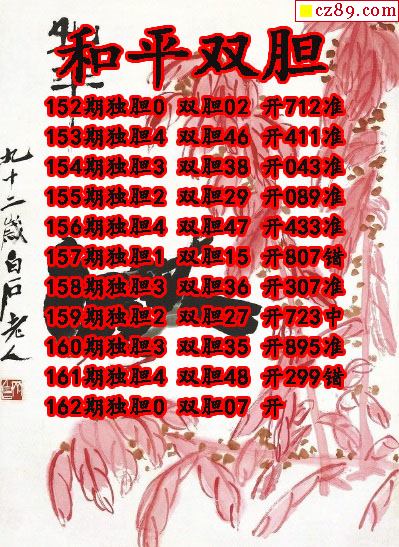 cz89.com
和平双胆
152期独胆0 双胆02 开712准
153期独胆4 双胆46 开411准
154期独胆3 双胆38 开043准
155期独胆2 双胆29 开089准
156期独胆4 双胆47 开433准
157期独胆1 双胆15 开807错
158期独胆3 双胆36 开307准
159期独胆2 双胆27 开723中
160期独胆3 双胆35 开895准
161期独胆4 双胆48 开299错
162期独胆0 双胆07 开
九十二岁白石老人